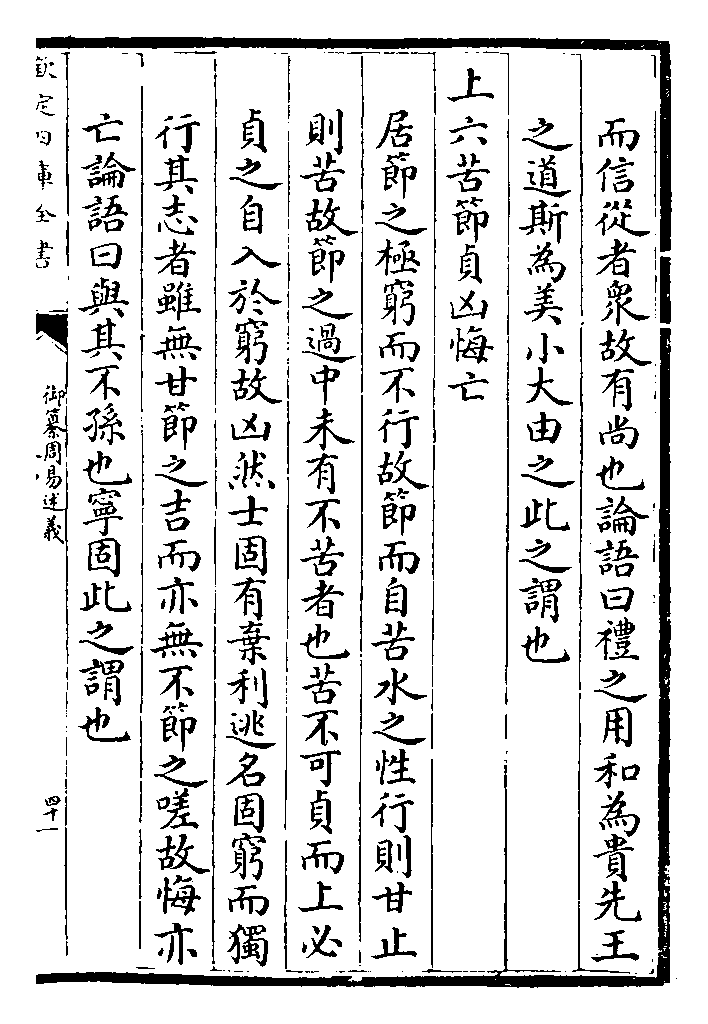 而信從者衆故有尚也論語曰禮之用和為貴先王
之道斯為美小大由之此之謂也
上六苦節貞凶悔亡
居節之極窮而不行故節而自苦水之性行則甘止
則苦故節之過中未有不苦者也苦不可貞而上必
貞之自入於窮故凶然士固有棄利逃名固窮而獨
行其志者雖無甘節之吉而亦無不節之嗟故悔亦
亡論語曰與其不孫也寧固此之謂也
欽定四庫全書
御纂周易述義
四十一